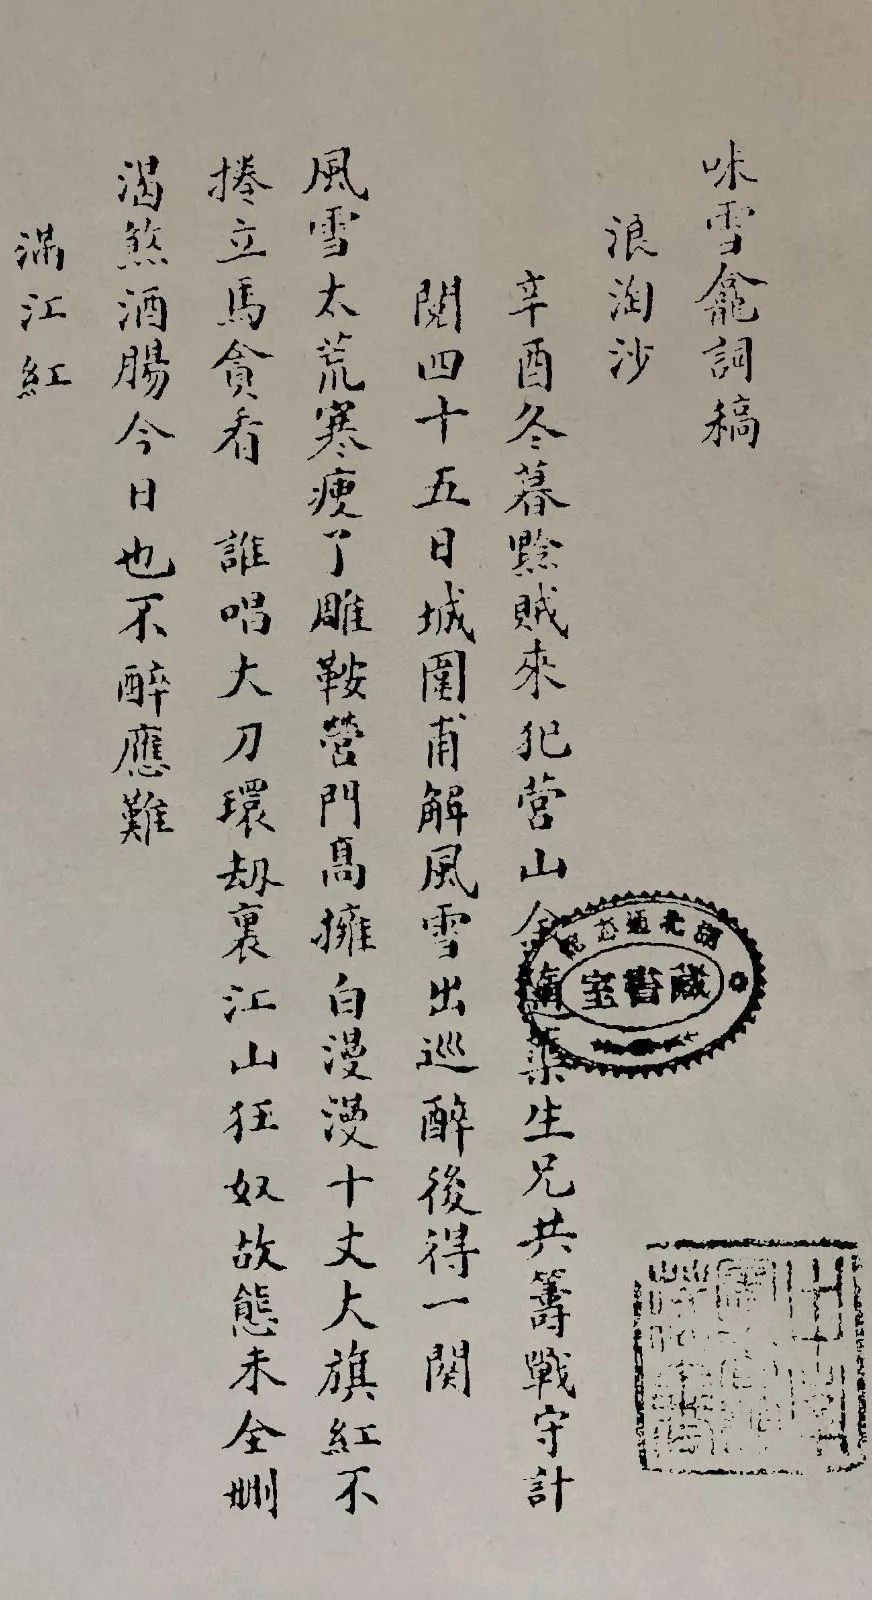 味雪龕詞稿
浪淘沙
辛酉冬暮黔賊來犯營山余葉生兄共籌戰守計
閱四十五日城圍甫解風雪出巡醉後得一闋
風雪太荒寒瘦了雕鞍營門高擁白漫漫十丈大旗紅不
捲立馬貪看　誰唱大刀環劫裏江山狂奴故態未全刪
渴煞酒腸今日也不醉應難
滿江紅
藏書室